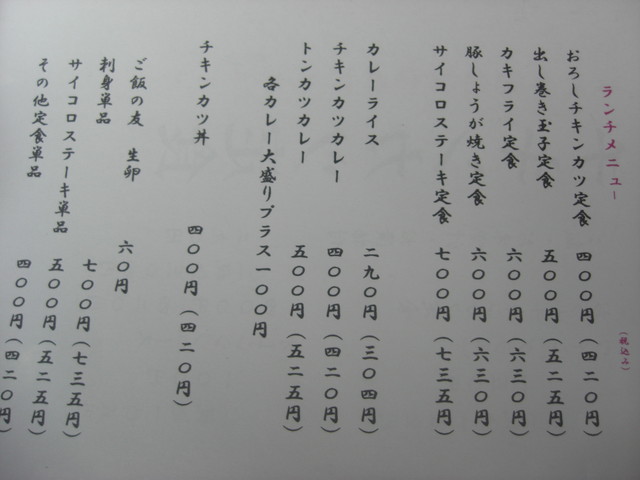 ランチメニュー （税込み）
おろしチキンカツ定食 四〇〇円（四二〇円）
出し巻き玉子定食 五〇〇円（五二五円）
カキフライ定食 六〇〇円（六三〇円）
豚しょうが焼き定食 六〇〇円（六三〇円）
サイコロステーキ定食 七〇〇円（七三五円）
カレーライス 二九〇円（三〇四円）
チキンカツカレー 四〇〇円（四二〇円）
トンカツカレー 五〇〇円（五二五円）
各カレー大盛りプラス一〇〇円
チキンカツ丼 四〇〇円（四二〇円）
ご飯の友 生卵 六〇円
刺身単品 七〇〇円（七三五円）
サイコロステーキ単品 五〇〇円（五二五円）
その他定食単品 四〇〇円（四二〇円）